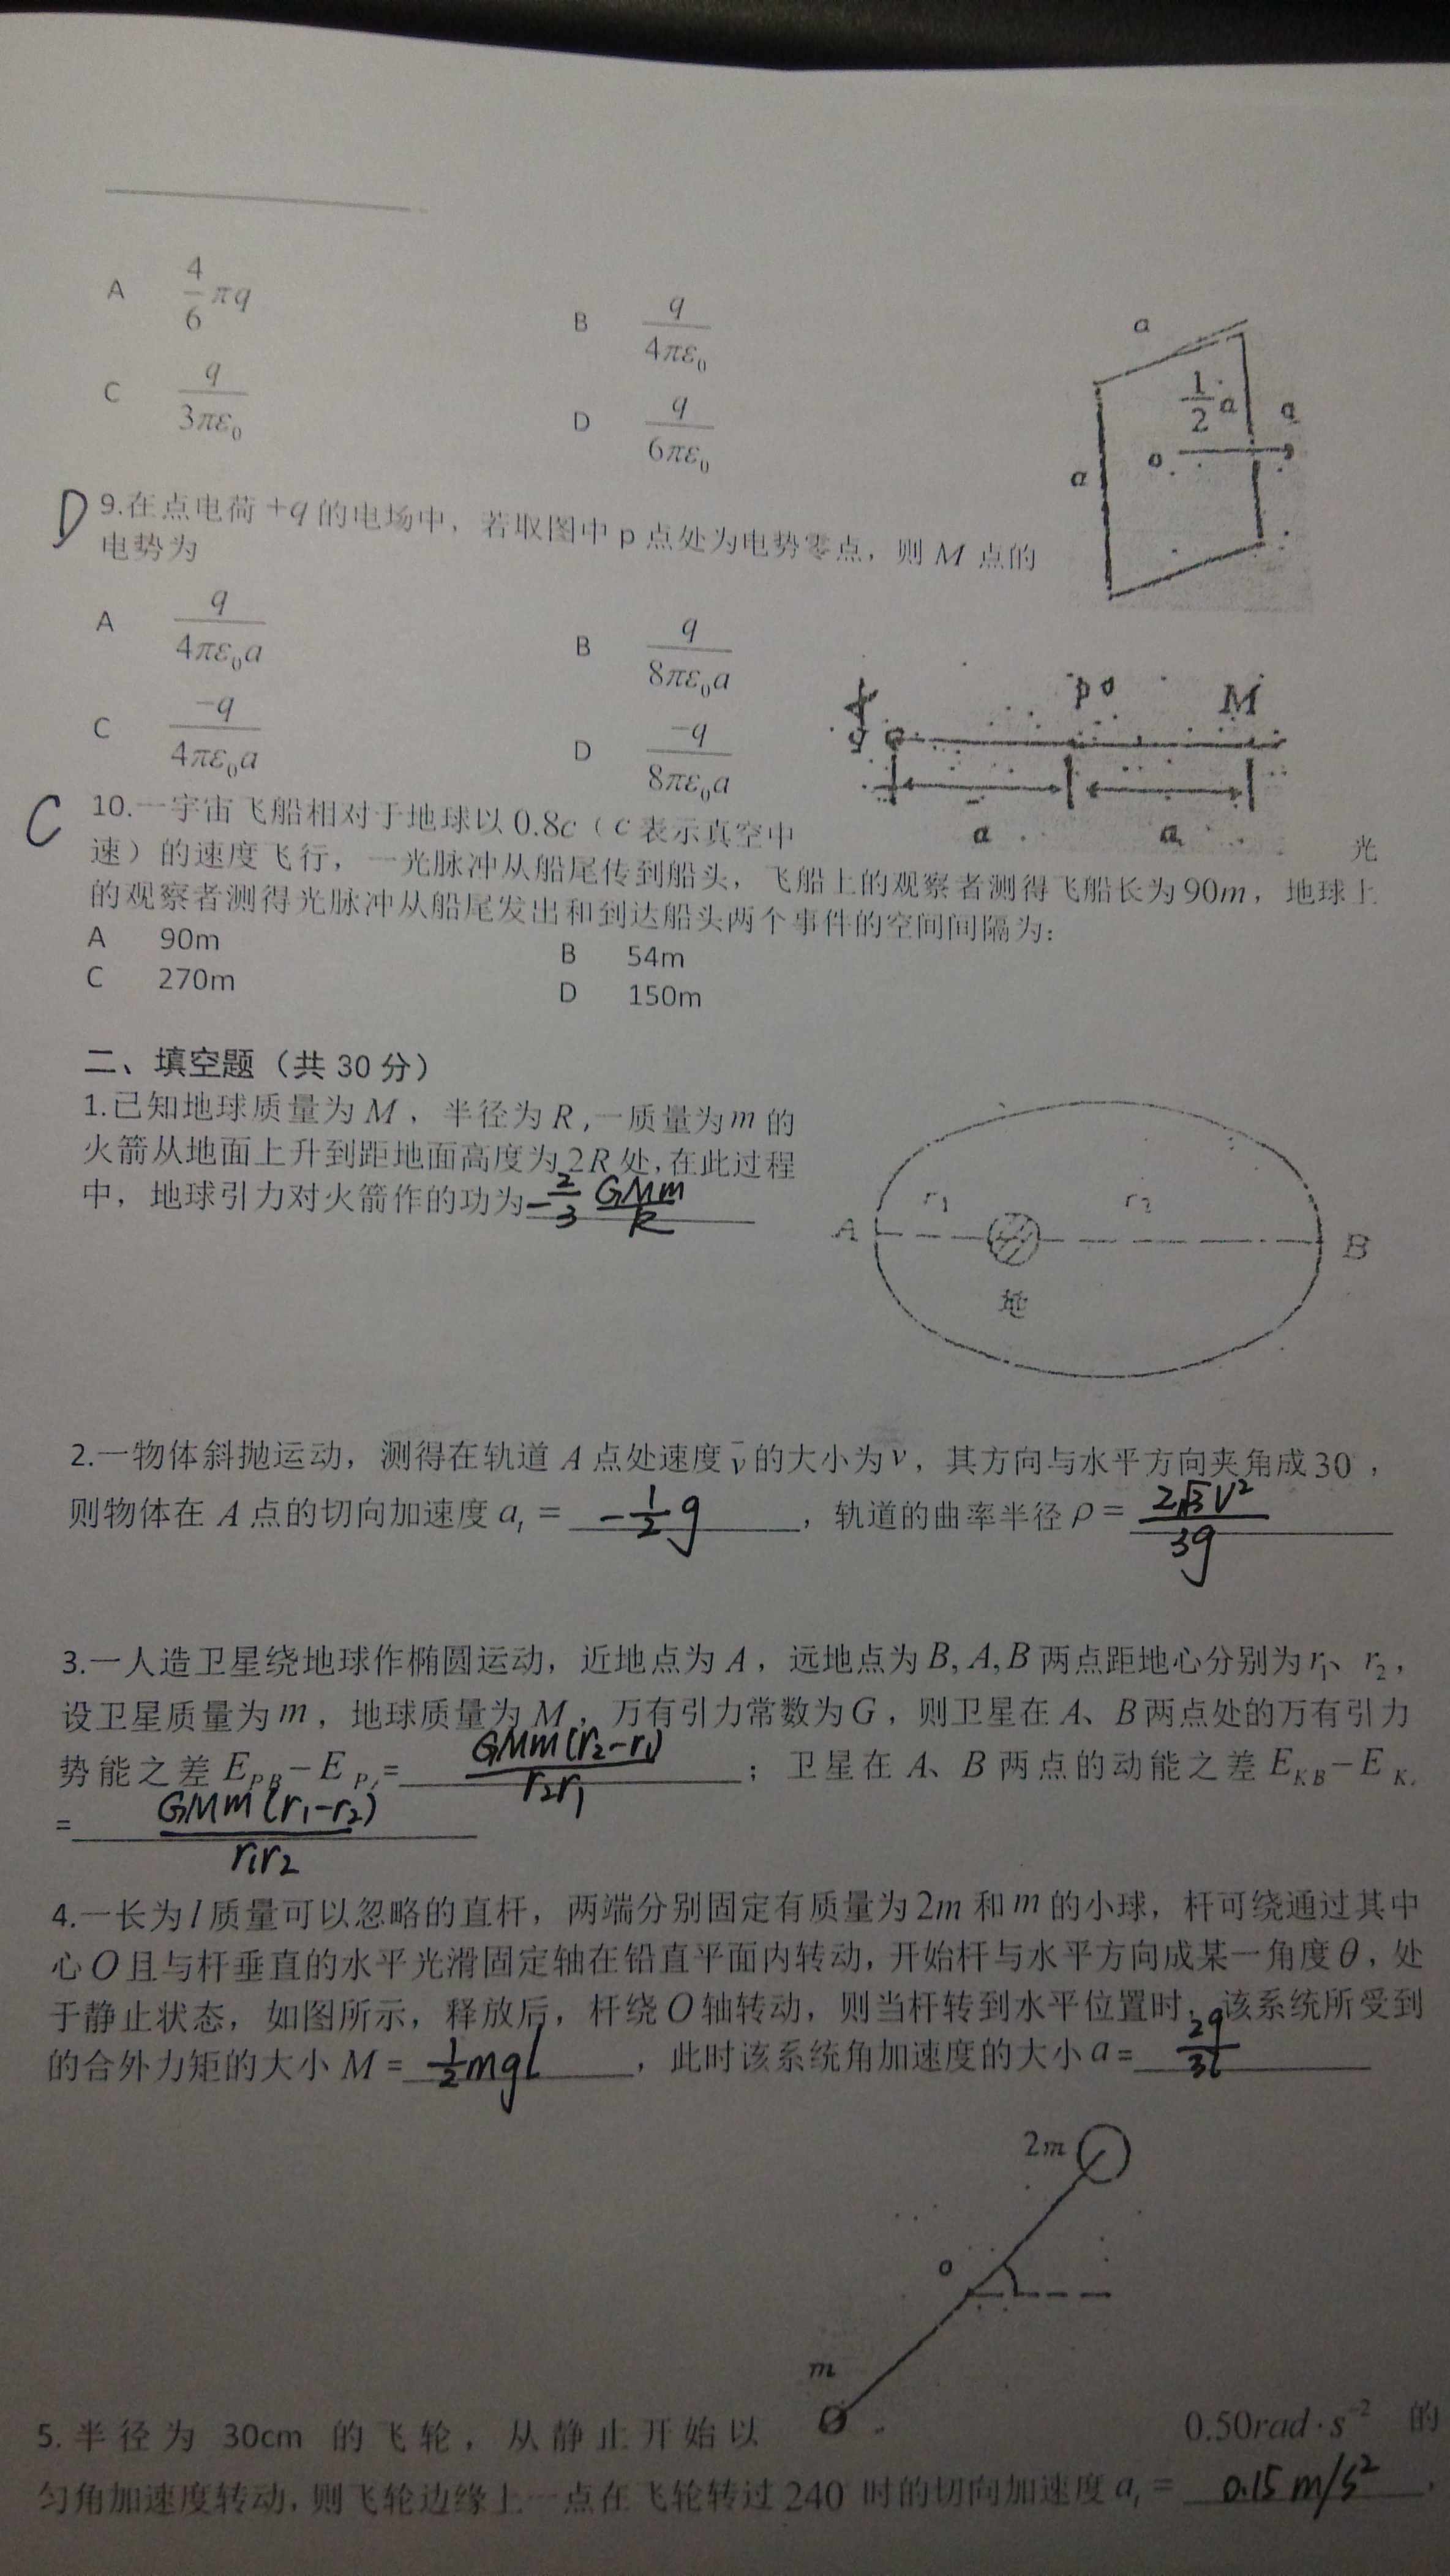 A 4/6 πq
B q/4πε₀
C q/3πε₀
D q/6πε₀
a
1/2 a
q
a
o
D 9.在点电荷+q的电场中，若取图中p点处为电势零点，则M点的
电势为
A q/4πε₀a
B q/8πε₀a
C -q/4πε₀a
D -q/8πε₀a
p
M
a
a
C 10.一宇宙飞船相对于地球以0.8c（c表示真空中 光
速）的速度飞行，一光脉冲从船尾传到船头，飞船上的观察者测得飞船长为90m，地球上
的观察者测得光脉冲从船尾发出和到达船头两个事件的空间间隔为：
A 90m
B 54m
C 270m
D 150m
二、填空题（共30分）
1.已知地球质量为M，半径为R,一质量为m的
火箭从地面上升到距地面高度为2R处,在此过程
中，地球引力对火箭作的功为 -2/3 GMm/R
A r₁ r₂ B
地
2.一物体斜抛运动，测得在轨道A点处速度v̄的大小为v，其方向与水平方向夹角成30，
则物体在A点的切向加速度aₜ= -1/2 g ，轨道的曲率半径ρ= 2√3v²/3g
3.一人造卫星绕地球作椭圆运动，近地点为A，远地点为B,A,B两点距地心分别为r₁、r₂，
设卫星质量为m，地球质量为M，万有引力常数为G，则卫星在A、B两点处的万有引力
势能之差E_PB-E_P = GMm(r₂-r₁)/r₂r₁ ；卫星在A、B两点的动能之差E_KB-E_K
= GMm(r₁-r₂)/r₁r₂
4.一长为l质量可以忽略的直杆，两端分别固定有质量为2m和m的小球，杆可绕通过其中
心O且与杆垂直的水平光滑固定轴在铅直平面内转动，开始杆与水平方向成某一角度θ，处
于静止状态，如图所示，释放后，杆绕O轴转动，则当杆转到水平位置时，该系统所受到
的合外力矩的大小M= 1/2 mgl ，此时该系统角加速度的大小a= 2g/3l
2m
o
m
5.半径为30cm的飞轮，从静止开始以 0.50rad·s⁻² 的
匀角加速度转动，则飞轮边缘上一点在飞轮转过240时的切向加速度aₜ= 0.15 m/s² ，